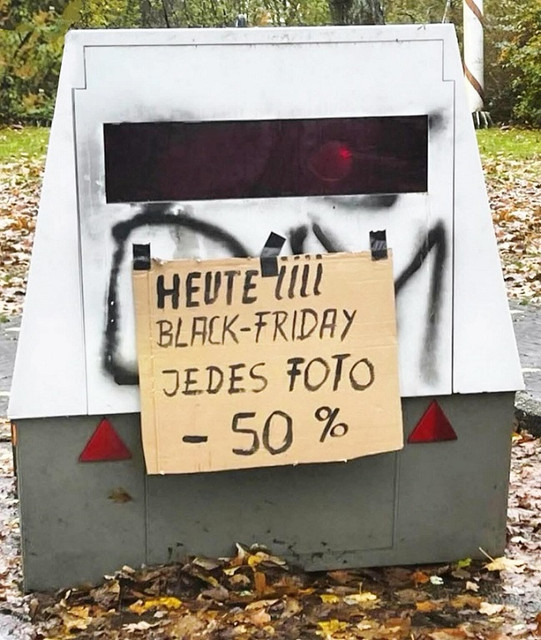 HEUTE !!!!
BLACK-FRIDAY
JEDES FOTO
- 50 %